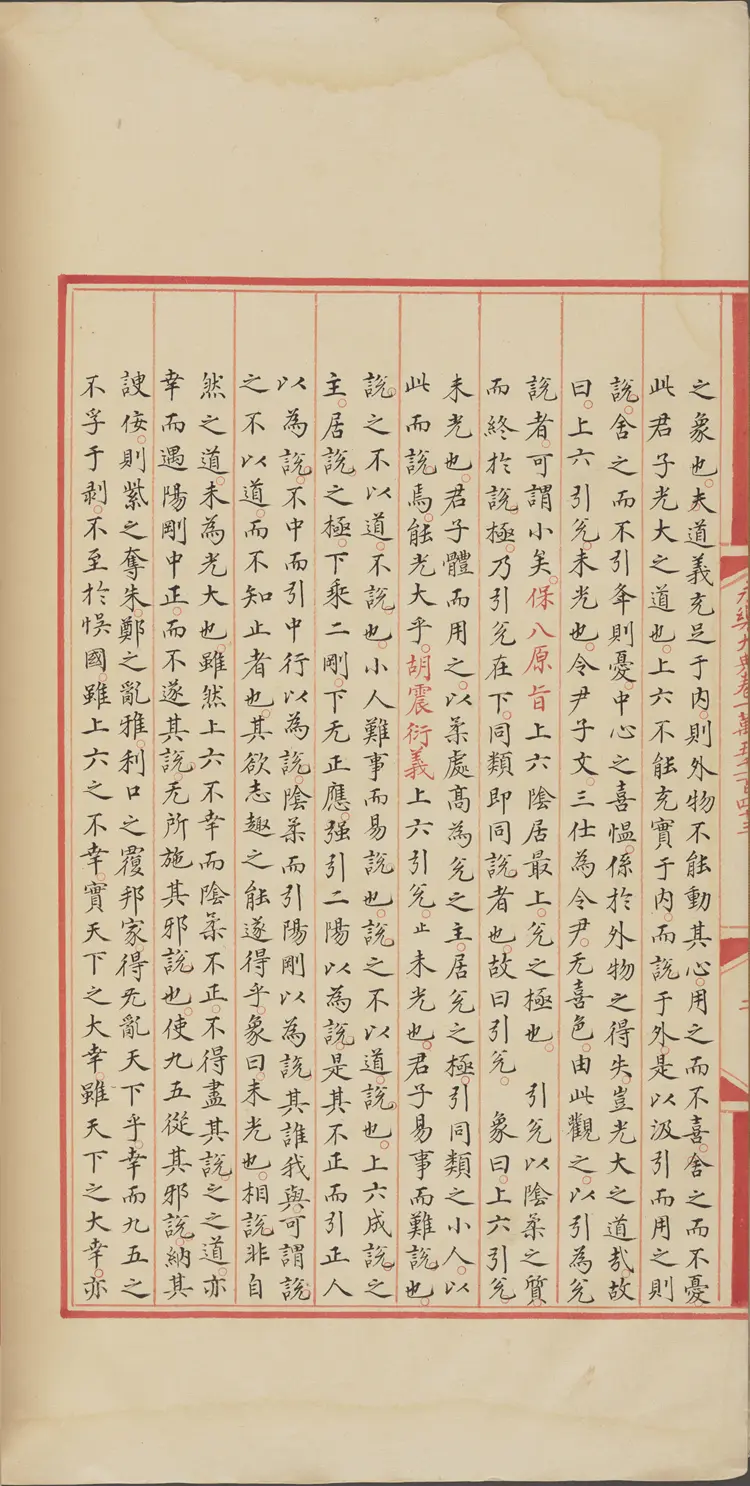 永樂大典卷一萬五千一百四十三
二
之象也。夫道義充足于内。則外物不能動其心。用之而不喜。舍之而不憂
此君子光大之道也。上六不能充實于内。而說于外。是以汲引而用之則
說。舍之而不引弇則憂。中心之喜愠。係於外物之得失。豈光大之道哉。故
曰。上六引兊。未光也。令尹子文。三仕為令尹。无喜色。由此觀之。以引為兊
說者。可謂小矣。保八原旨上六陰居最上。兊之極也。　引兊以隂柔之質
而終於說極。乃引兊在下。同類即同說者也。故曰引兊。　象曰。上六引兊。
未光也。君子體而用之。以柔處髙為兊之主。居兊之極。引同類之小人。以
此而說焉。能光大乎。胡震衍義上六引兊。止未光也。君子易事而難說也。
說之不以道。不說也。小人難事而易說也。說之不以道。說也。上六成說之
主。居說之極。下乘二剛。下无正應。强引二陽以為說。是其不正而引正人
以為說。不中而引中行以為說。隂柔而引陽剛以為說其誰我與。可謂說
之不以道。而不知止者也。其欲志趣之能遂得乎。象曰。未光也。相說非自
然之道。未為光大也。雖然上六不幸而陰柔不正。不得盡其說。之之道。亦
幸而遇陽剛中正。而不遂其說。无所施其邪說也。使九五從其邪說。納其
諛佞。則紫之奪朱。鄭之亂雅。利口之覆邦家得旡亂天下乎。幸而九五之
不孚于剥。不至於悞國。雖上六之不幸。實天下之大幸。雖天下之大幸。亦